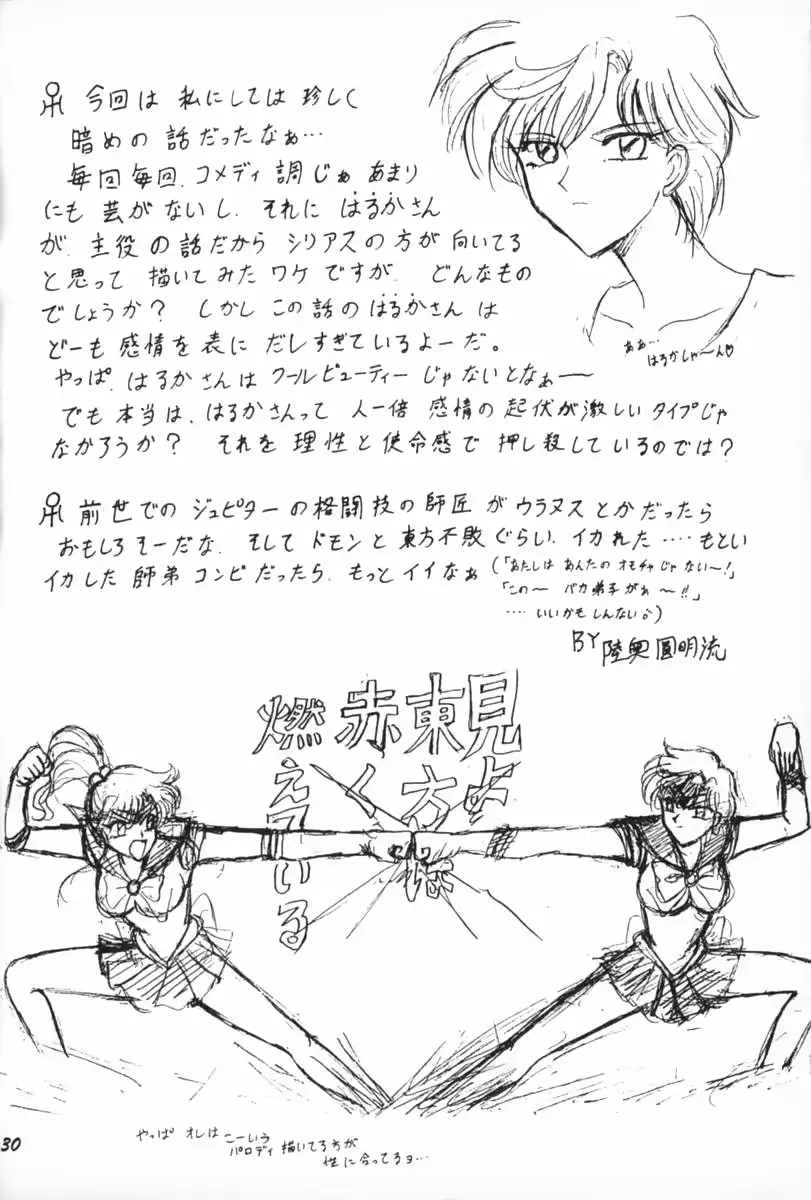 今回は 私にしては 珍しく
暗めの 話だったなぁ…
毎回毎回、コメディ調じゃぁ あまり
にも 芸がないし、それに はるかさん
が、主役の話だから シリアスの方が 向いてる
と思って 描いてみた ワケ ですが、 どんなもの
でしょうか? しかし この話の はるかさん は
どーも 感情を表に だしすぎているよーだ。
やっぱ、はるかさんは クールビューティー じゃないとなぁ──
でも 本当は、はるかさんって 人一倍 感情の 起伏が 激しい タイプじゃ
なかろうか? それを 理性と 使命感で 押し殺しているのでは?
ああ…
はるかしゃ〜ん♡
前世での ジュピターの 格闘技の 師匠 が ウラヌス とかだったら
おもしろそーだな、そして ドモンと 東方不敗ぐらい、イカれた ‥‥もとい
イカした 師弟 コンビ だったら、もっと イイなぁ (「あたしは あんたの オモチャじゃ ない〜!」
「この〜 バカ弟子がぁ 〜!!」
‥‥いいかも しんない♂)
BY 陸奥圓明流
見よ
東方は
赤く
燃えている
やっぱ オレは こーいう
パロディ 描いてる方が
性に合ってるヨ…
30